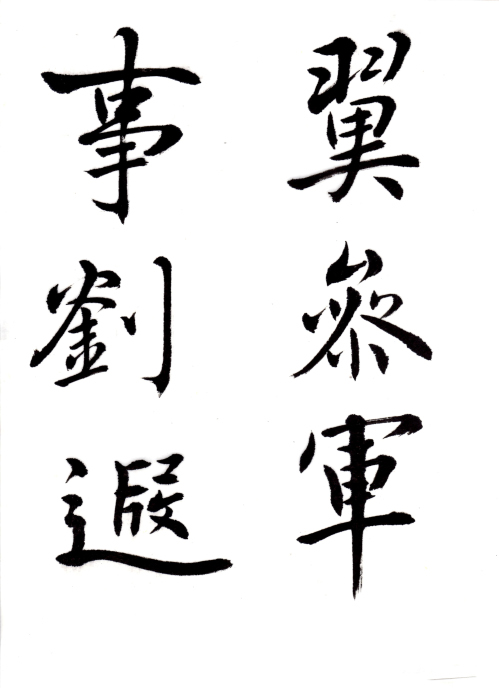 翼參軍
事劉遐